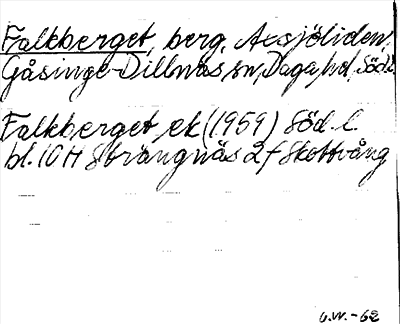 Falkberget, berg, Axsjöliden,
Gåsinge-Dillnäs sn, Daga hd, Söd.l.
Falkberget ek (1959) Söd. l.
bl. 10H Strängnäs 2f Skottvång
G.W.-62